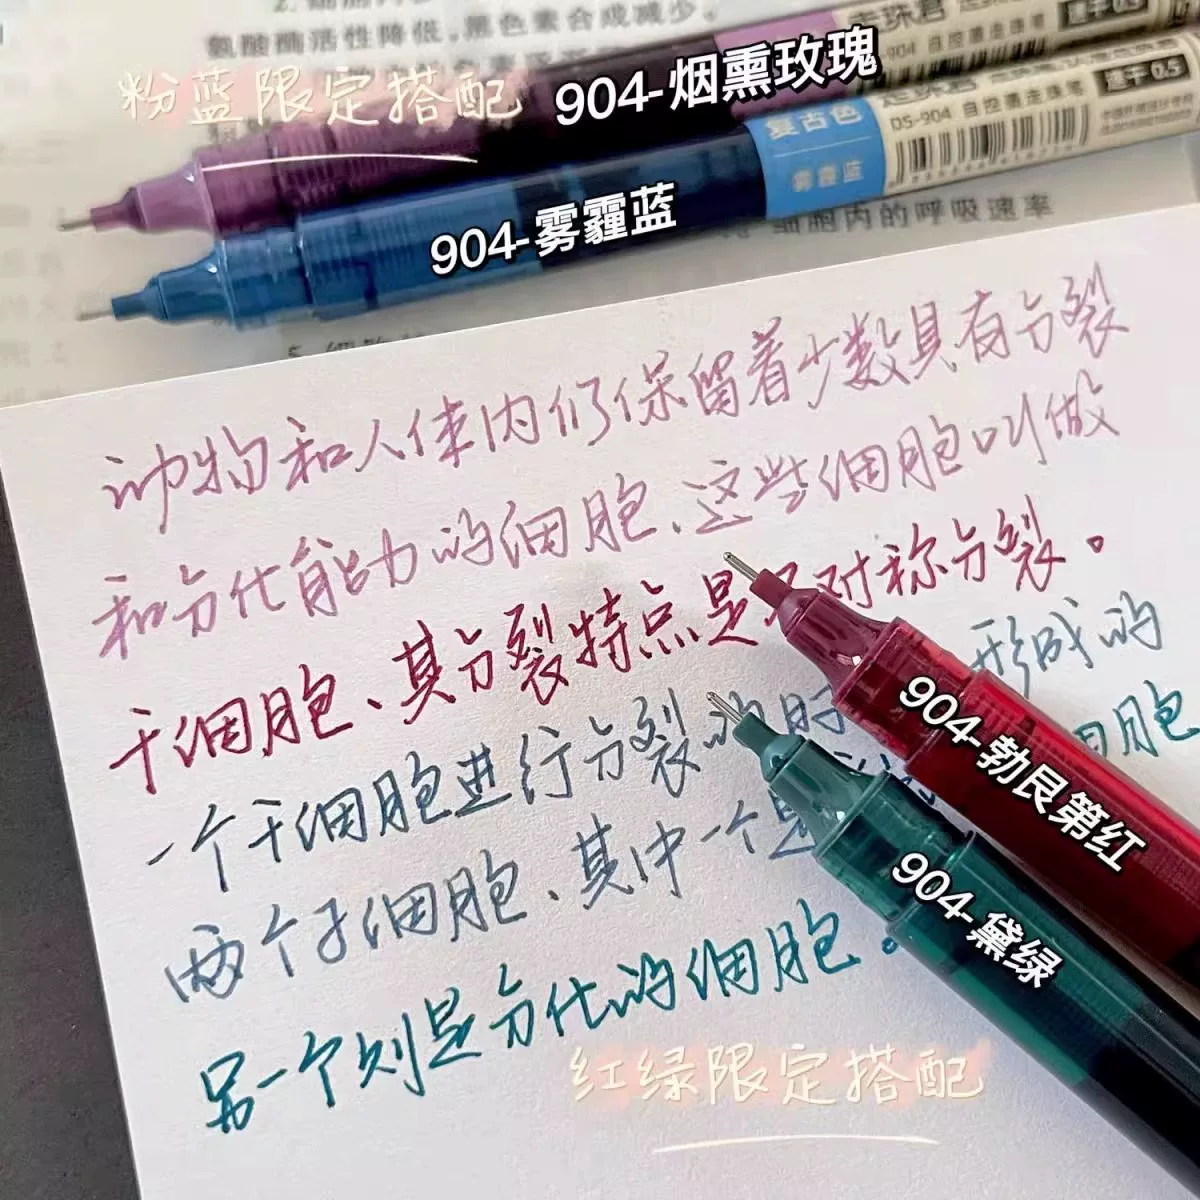 氨酸酶活性降低,黑色素合成减少。
粉蓝限定搭配
904-烟熏玫瑰
904-雾霾蓝
走珠君
速干 0.5
复古色
雾霾蓝
DS-904 自控墨走珠笔
速干 0.5
细胞内的呼吸速率
动物和人体内仍保留着少数具有分裂
和分化能力的细胞、这些细胞叫做
干细胞、其分裂特点是 对称分裂。
一个干细胞进行分裂的时 形成的
两个子细胞、其中一个是 细胞
另一个则是分化的细胞。
904-勃艮第红
904-黛绿
红绿限定搭配